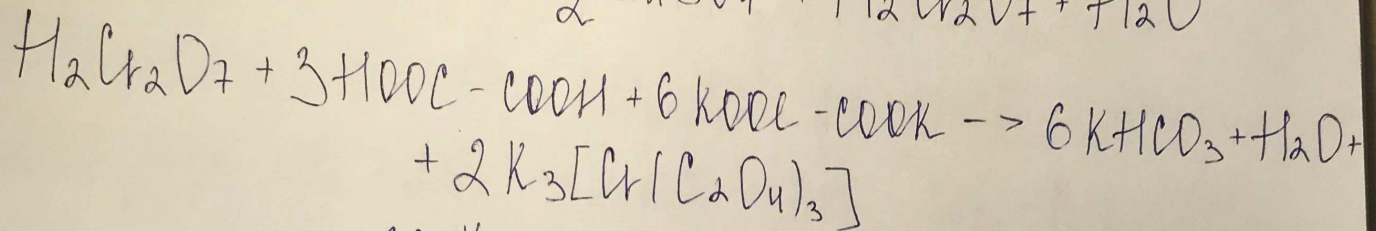 H₂Cr₂O₇ + H₂O
H₂Cr₂O₇ + 3HOOC - COOH + 6 KOOC - COOK -> 6 KHCO₃ + H₂O +
+ 2K₃[Cr(C₂O₄)₃]